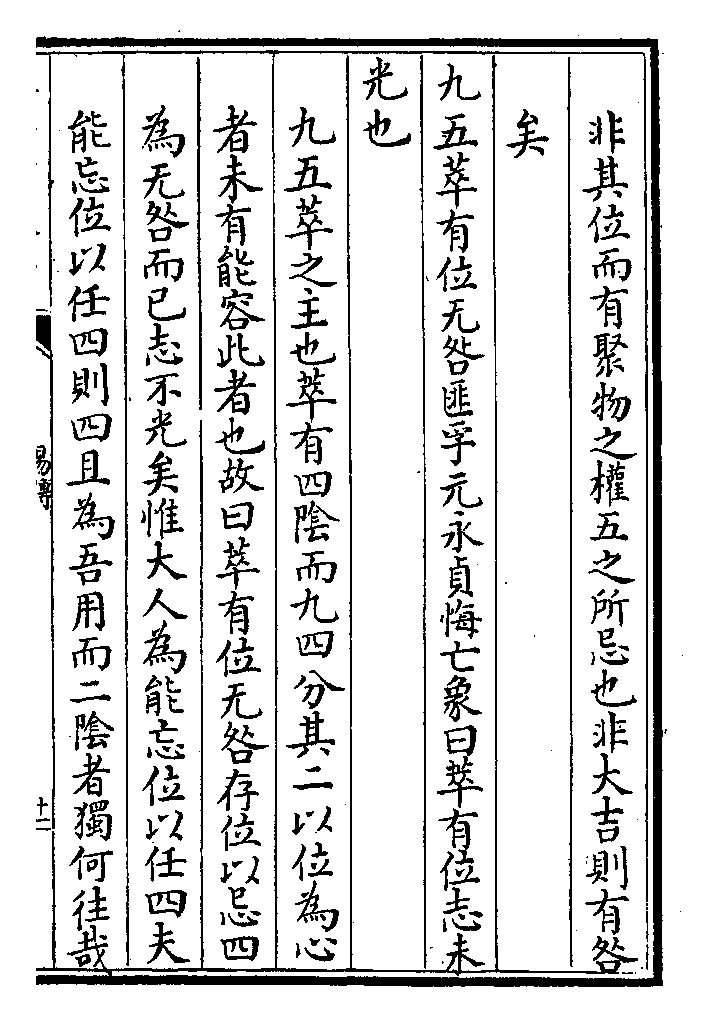 非其位而有聚物之權五之所忌也非大吉則有咎
矣
九五萃有位无咎匪孚元永貞悔亡象曰萃有位志未
光也
九五萃之主也萃有四陰而九四分其二以位為心
者未有能容此者也故曰萃有位无咎存位以忌四
為无咎而已志不光矣惟大人為能忘位以任四夫
能忘位以任四則四且為吾用而二陰者獨何往哉
易傳
十二